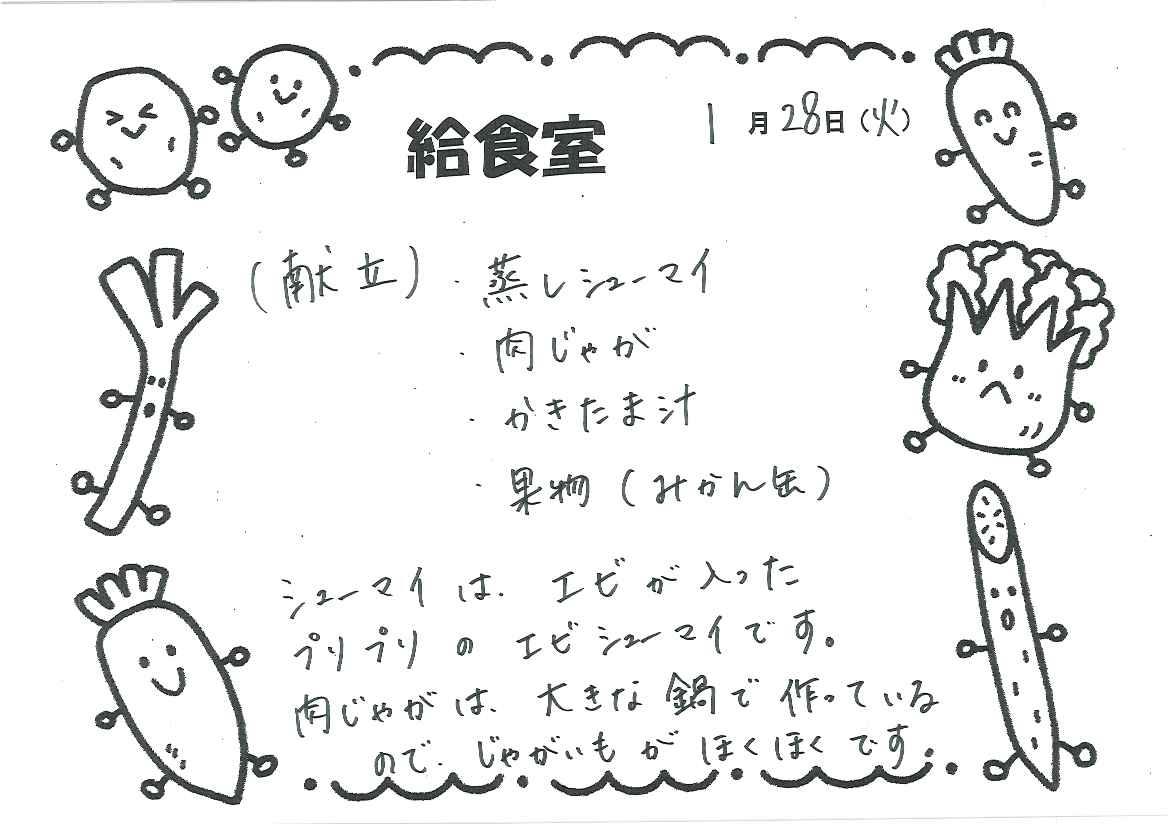 給食室
1月28日(火)
(献立)・蒸しシューマイ
・肉じゃが
・かきたま汁
・果物(みかん缶)
シューマイは、エビが入った
プリプリのエビシューマイです。
肉じゃがは、大きな鍋で作っている
ので、じゃがいもがほくほくです。